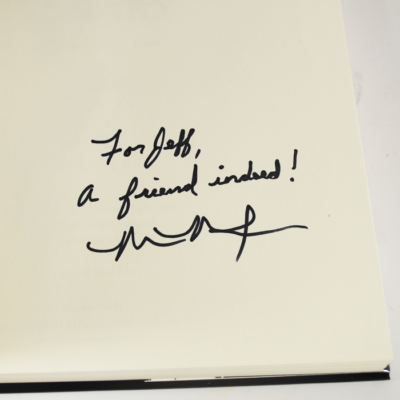 For Jeff,
a friend indeed!